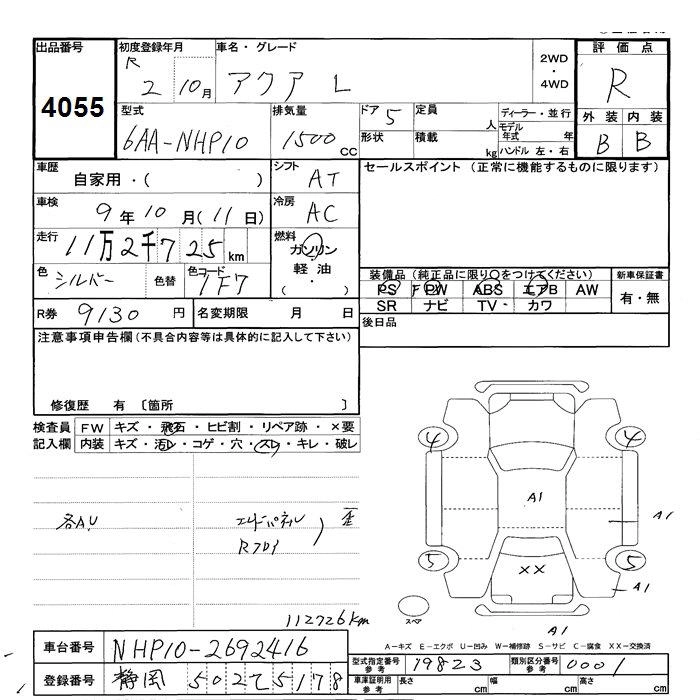 出品番号
4055
初度登録年月
R 2 10月
車名・グレード
アクア L
2WD
・
4WD
評価点
R
型式
6AA-NHP10
排気量
1500 CC
ドア 5
形状
定員 人
積載 kg
ディーラー・並行
モデル年式 年
ハンドル 左・右
外装 内装
B B
車歴
自家用・( )
シフト
AT
セールスポイント (正常に機能するものに限ります)
車検
9年10月(11日)
冷房
AC
走行
11万2千725km
燃料
ガソリン
軽油
( ・ )
色
シルバー
色替
色コード
1F7
装備品 (純正品に限り○をつけてください)
PS PW ABS エアB AW
SR ナビ TV・ カワ
新車保証書
有・無
R券 9130円
名変期限 月 日
後日品
注意事項申告欄(不具合内容等は具体的に記入して下さい)
修復歴 有 〔箇所 〕
検査員
記入欄
FW キズ・飛石・ヒビ割・リペア跡・×要
内装 キズ・汚レ・コゲ・穴・スレ・キレ・破レ
各AU
エンドパネル
Rフロア
) 歪
112726km
4 4
A1
A1
5 5
XX
A1
スペア
A1
A-キズ E-エクボ U-凹み W-補修跡 S-サビ C-腐食 XX-交換済
車台番号 NHP10-2692416
登録番号 静岡 502 て 5178
型式指定番号 参考 19823
類別区分番号 参考 0001
車庫証明用 参考
長さ cm 幅 cm 高さ cm